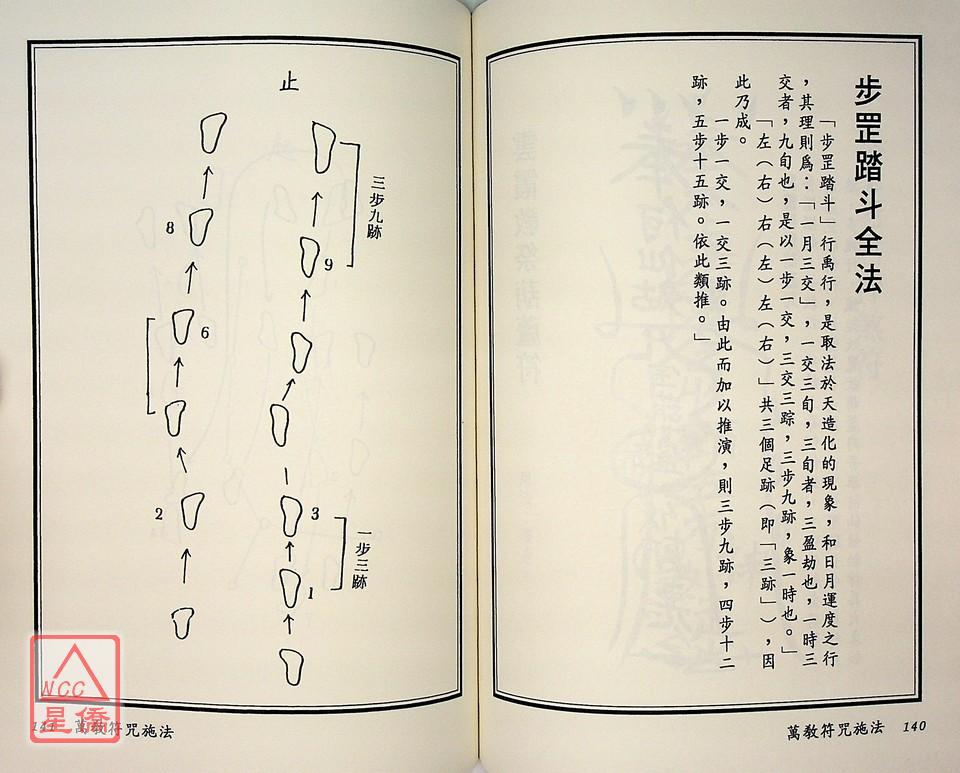 步罡踏斗全法
「步罡踏斗」行禹行，是取法於天造化的現象，和日月運度之行
，其理則為：「一月三交」，一交三旬，三旬者，三盈劫也，一時三
交者，九旬也，是以一步一交，三交三踪，三步九跡，象一時也。」
「左（右）右（左）左（右）」共三個足跡（即「三跡」），因
此乃成。
一步一交，一交三跡。由此而加以推演，則三步九跡，四步十二
跡，五步十五跡。依此類推。」
萬教符咒施法 140
止
三步九跡
8
9
6
2
3
一步三跡
1
141 萬教符咒施法
NCC
星僑